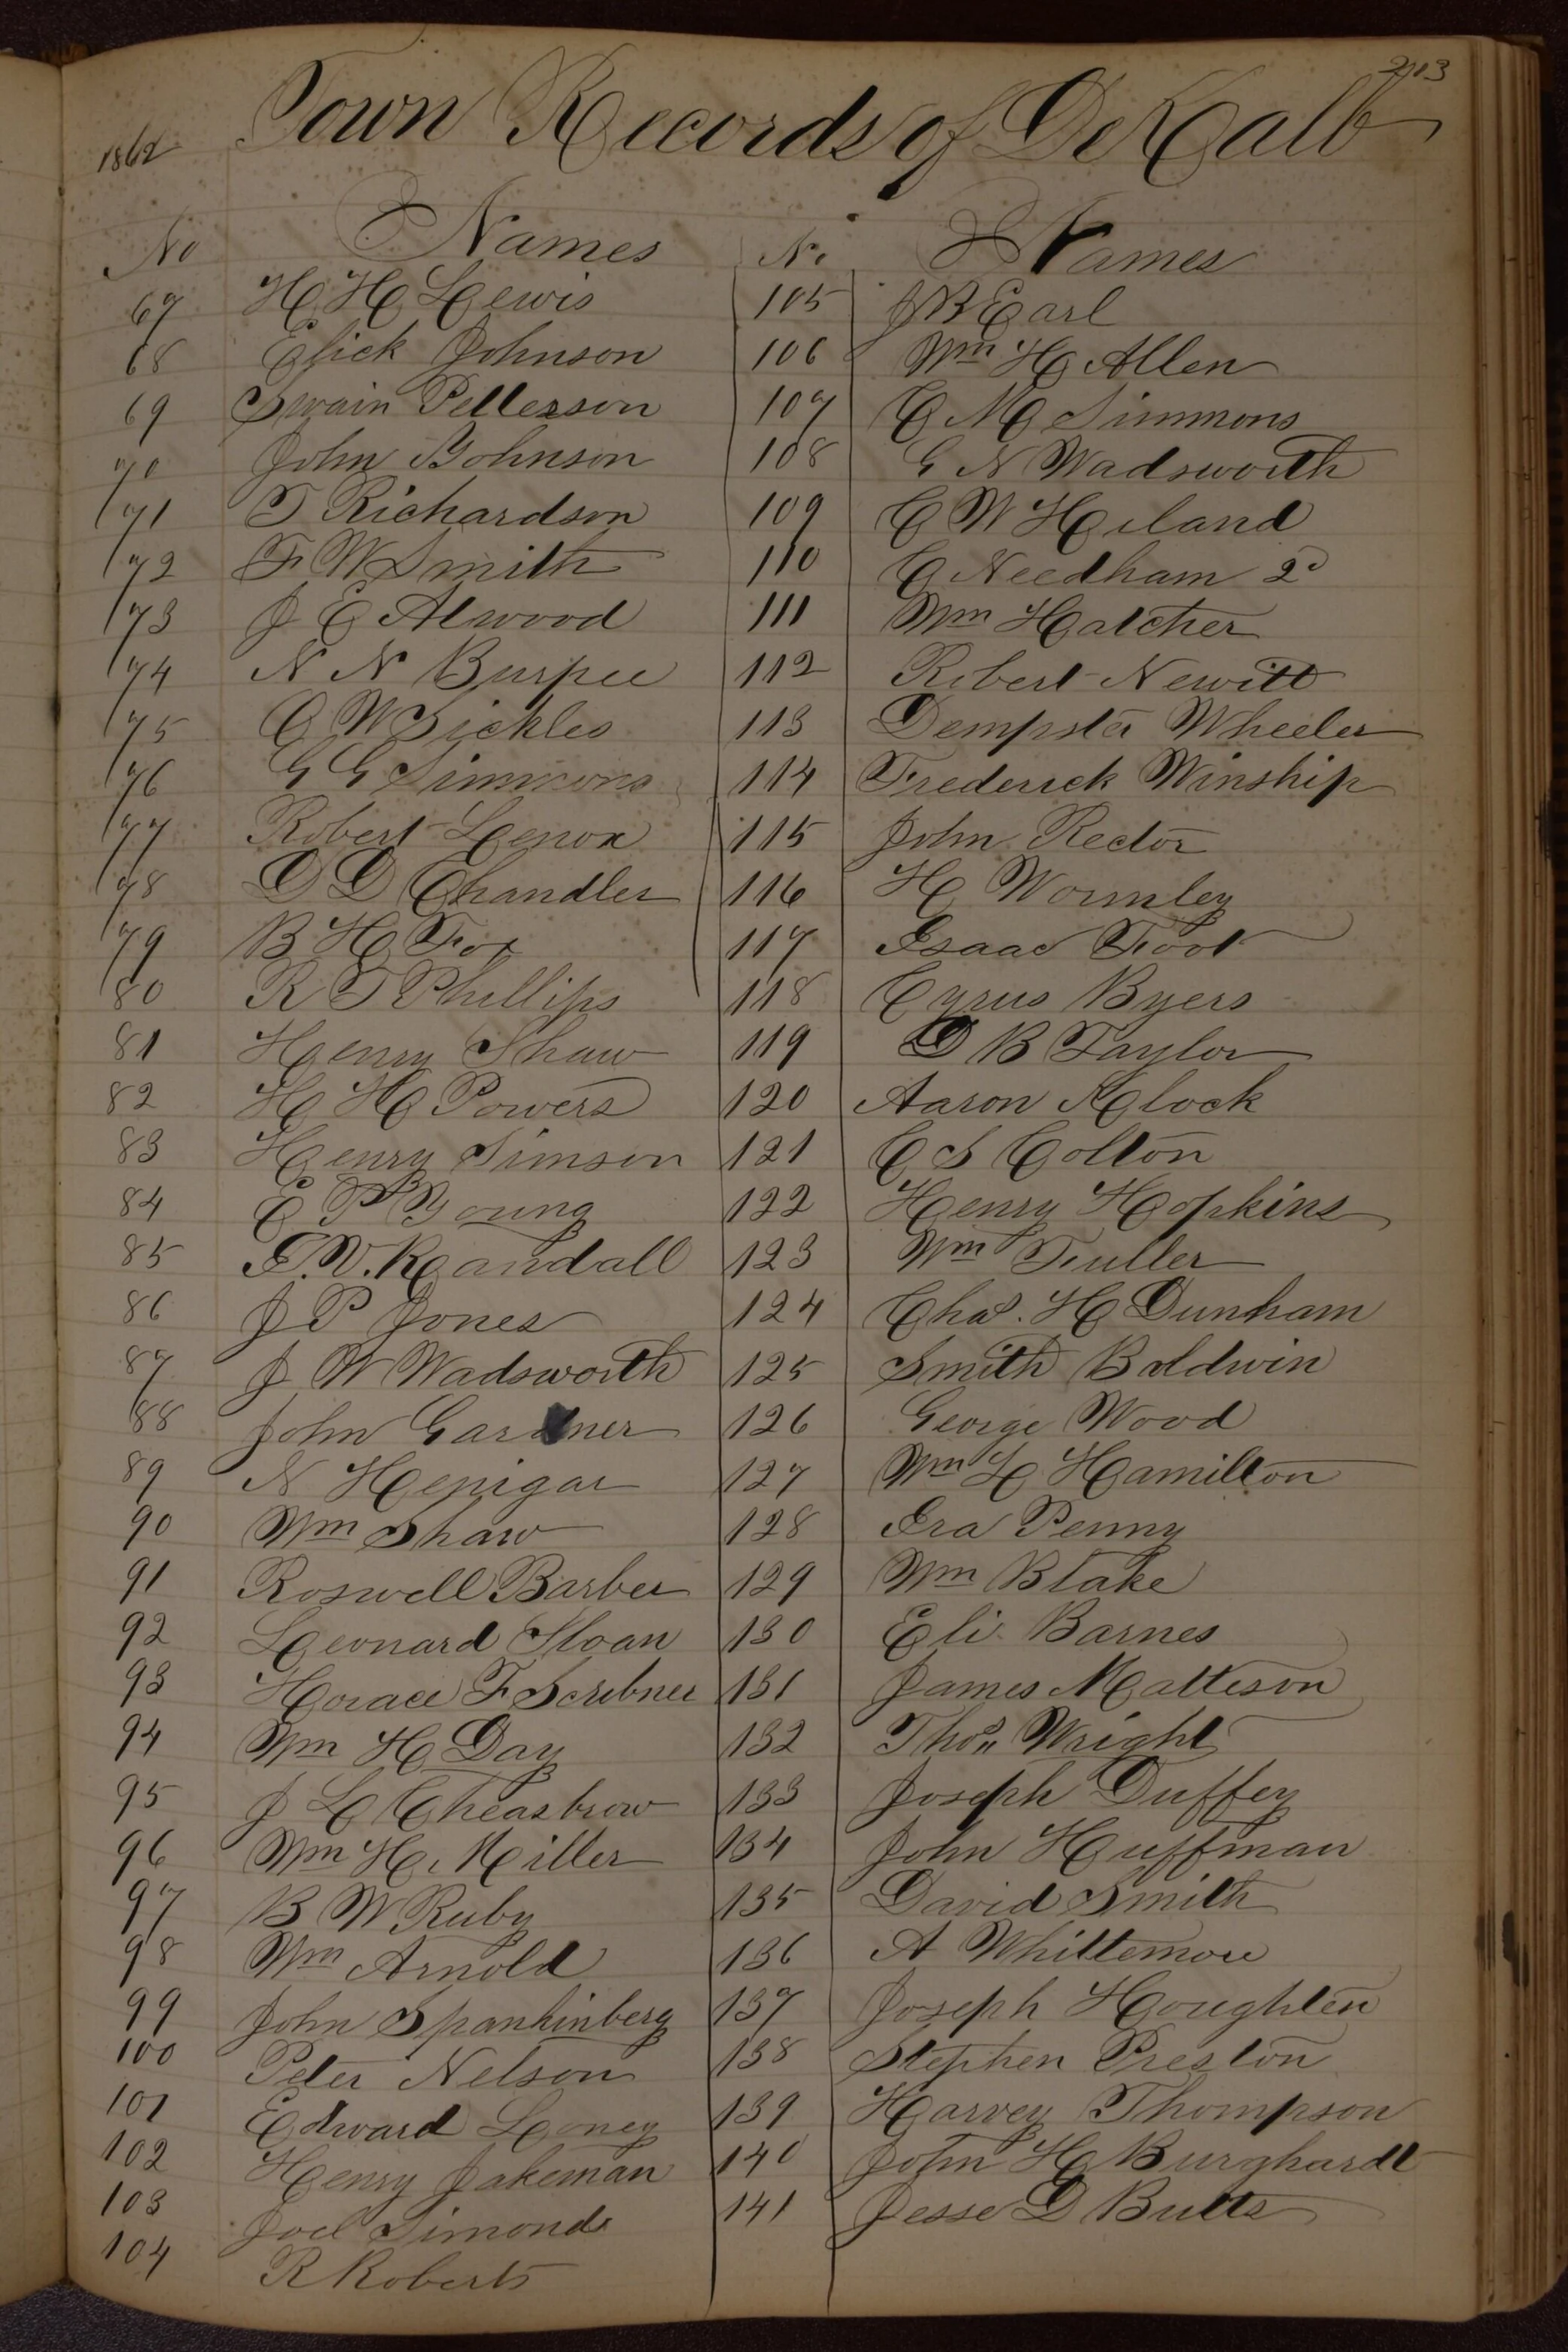 213
1862 Town Records of DeKalb
No Names
67 H H Lewis
68 Elick Johnson
69 Swain Petterson
70 John Johnson
71 T Richardson
72 F W Smith
73 J E Atwood
74 N N Burpee
75 O W Sickles
76 G G Simmons
77 Robert Lenox
78 D D Chandler
79 B H Fox
80 R T Phillips
81 Henry Shaw
82 H H Powers
83 Henry Simson
84 E P Young
85 I. V. Randall
86 J P Jones
87 J W Wadsworth
88 John Gardner
89 N Henigar
90 Wm Shaw
91 Roswell Barber
92 Leonard Sloan
93 Horace F Scribner
94 Wm H Day
95 J L Cheasbrow
96 Wm H. Miller
97 B W Ruby
98 Wm Arnold
99 John Spankinberg
100 Peter Nelson
101 Edward Loney
102 Henry Jakeman
103 Joel Simonds
104 R Roberts
No Names
105 J B Earl
106 Wm H Allen
107 C M Simmons
108 G N Wadsworth
109 C W Hiland
110 C Needham 2d
111 Wm Hatcher
112 Robert Newitt
113 Dempster Wheeler
114 Frederick Winship
115 John Rector
116 H Wormley
117 Isaac Foot
118 Cyrus Byers
119 D B Taylor
120 Aaron Klock
121 C S Colton
122 Henry Hopkins
123 Wm Fuller
124 Chas. H Dunham
125 Smith Baldwin
126 George Wood
127 Wm L Hamilton
128 Ira Penny
129 Wm Blake
130 Eli Barnes
131 James Matteson
132 Thos Wright
133 Joseph Duffey
134 John Huffman
135 David Smith
136 A Whittemore
137 Joseph Houghten
138 Stephen Preston
139 Harvey Thompson
140 John H Burghardt
141 Jesse D Butts